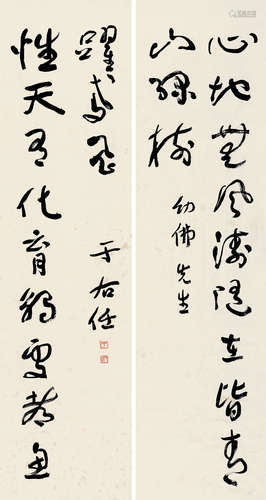 心地無風濤隨在皆青
山綠樹
幼佛先生
性天有化育觸處都魚
躍鳶飛
于右任